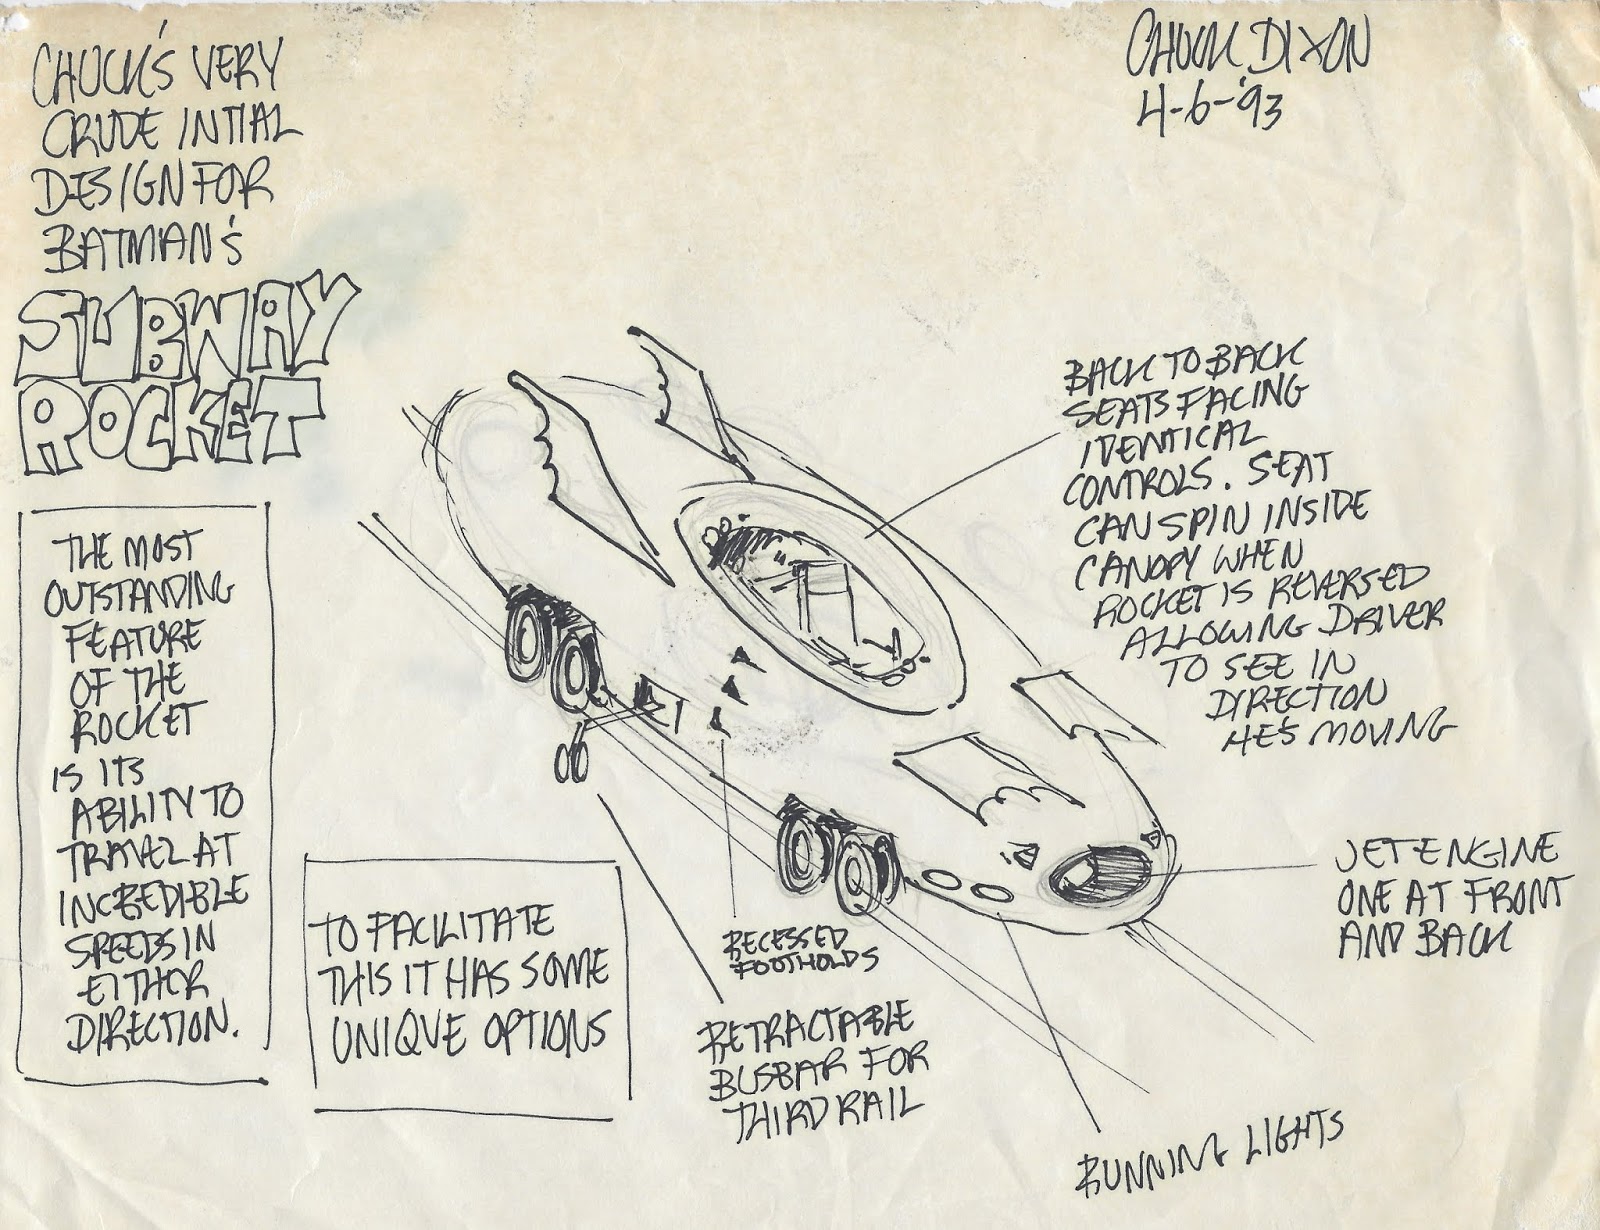 CHUCK'S VERY
CRUDE INTIAL
DESIGN FOR
BATMAN'S
SUBWAY
ROCKET
CHUCK DIXON
4-6-'93
THE MOST
OUTSTANDING
FEATURE
OF THE
ROCKET
IS ITS
ABILITY TO
TRAVEL AT
INCREDIBLE
SPEEDS IN
EITHER
DIRECTION.
TO FACILITATE
THIS IT HAS SOME
UNIQUE OPTIONS
BACK TO BACK
SEATS FACING
IDENTICAL
CONTROLS. SEAT
CAN SPIN INSIDE
CANOPY WHEN
ROCKET IS REVERSED
ALLOWING DRIVER
TO SEE IN
DIRECTION
HE'S MOVING
JET ENGINE
ONE AT FRONT
AND BACK
RECESSED
FOOTHOLDS
RETRACTABLE
BUSBAR FOR
THIRD RAIL
RUNNING LIGHTS